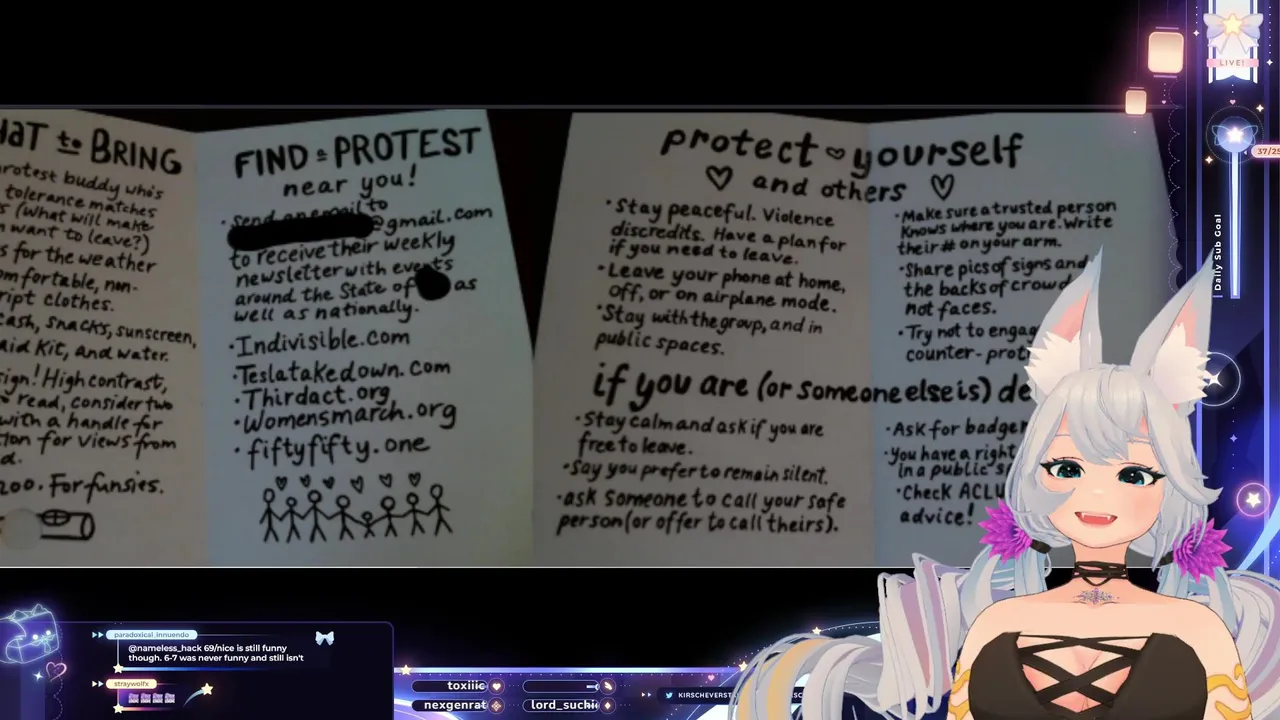 to BRING
protest buddy who's
tolerance matches
(What will make
want to leave?)
s for the weather
comfortable, non-
clothes.
cash, snacks, sunscreen,
aid kit, and water.
sign! High contrast,
read, consider two
with a handle for
for views from
For funsies.
FIND a PROTEST
near you!
• Send an email to
@gmail.com
to receive their weekly
newsletter with events
around the State of as
well as nationally.
• Indivisible.com
• Teslatakedown.com
• Thirdact.org
• Womensmarch.org
• fiftyfifty.one
protect yourself
and others
• Stay peaceful. Violence
discredits. Have a plan for
if you need to leave.
• Leave your phone at home,
off, or on airplane mode.
• Stay with the group, and in
public spaces.
• Make sure a trusted person
knows where you are. Write
their # on your arm.
• Share pics of signs and
the backs of crowd
not faces.
• Try not to engag
counter-prot
if you are (or someone else is) de
• Stay calm and ask if you are
free to leave.
• Say you prefer to remain silent.
• ask someone to call your safe
person (or offer to call theirs).
• Ask for badge
• You have a right
in a public s
• Check ACLU
advice!
LIVE!
37/25
Daily Sub Goal
paradoxical_innuendo
@nameless_hack 69/nice is still funny
though. 6-7 was never funny and still isn't
straywolfx
toxiiic
nexgenrat
lord_suchi
KIRSCHEVERST